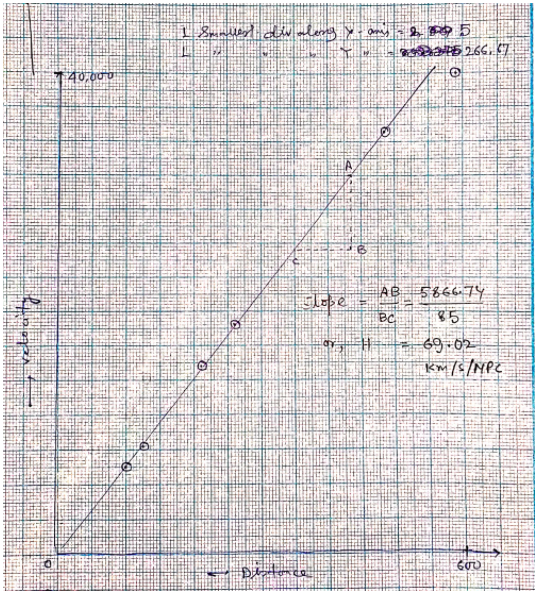 1 Smallest div along X-axis = 5
1 " " " Y " = 266.67
40,000
A
B
C
Slope = AB/BC = 5866.74/85
or, H = 69.02
Km/s/MPC
→ velocity
0
→ Distance
600